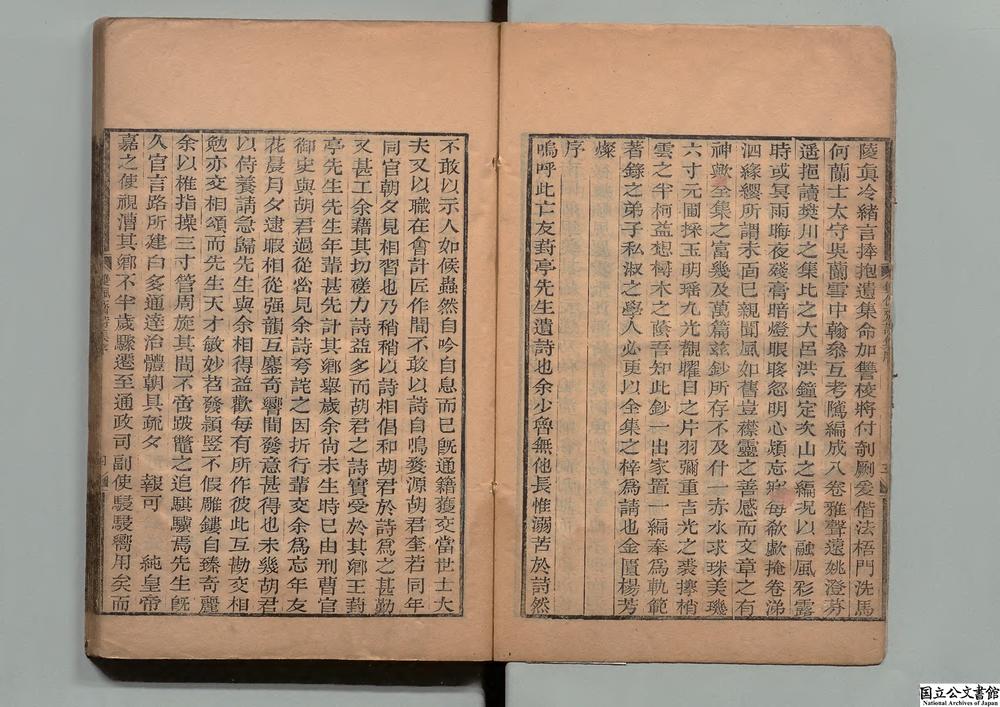 陵眞冷緒言捧抱遺集命加讐棱將付剞劂爰偕法梧門洗馬
何蘭士太守吳蘭雪中翰叅互考隲編成八卷雅聲遠姚澄芬
遥挹讀樊川之集比之大呂洪鐘定次山之編況以融風彩露
時或冥雨晦夜殘膏暗燈眼眵忽明心煩忘寐每欷歔掩卷涕
泗緣纓所謂未面已親聞風如舊豈襟靈之善感而文章之有
神歟全集之富幾及萬篇兹鈔所存不及什一赤水求珠美璣
六寸元圃採玉明瑶九光觀曜日之片羽彌重吉光之裘攀梢
雲之半柯益想樹木之蔭吾知此鈔一出家置一編奉爲軌範
著錄之弟子私淑之學人必更以全集之梓爲請也金匱楊芳
燦
序
嗚呼此亡友葑亭先生遺詩也余少魯無他長惟溺苦於詩然
不敢以示人如候蟲然自吟自息而已旣通籍獲交當世士大
夫又以職在會計匠作間不敢以詩自鳴婺源胡君奎若同年
同官朝夕見相習也乃稍稍以詩相倡和胡君於詩爲之甚勤
又甚工余藉其切磋力詩益多而胡君之詩實受於其鄉王葑
亭先生先生年輩甚先計其鄉舉歲余尙未生時已由刑曹官
御史與胡君過從嘗見余詩夸詫之因折行輩交余爲忘年友
花晨月夕逮暇相從強韻互賡奇響間發意甚得也未幾胡君
以侍養請急歸先生與余相得益歡每有所作彼此互勘交相
勉亦交相頌而先生天才敏妙苕發穎竪不假雕鏤自臻奇麗
余以椎指操三寸管周旋其間不啻跛鼈之追騏驥焉先生旣
久官言路所建白多通達治體朝具疏夕　報可　純皇帝
嘉之使視漕其鄉不半歲驟遷至通政司副使駸駸嚮用矣而
国立公文書館
National Archives of Japan